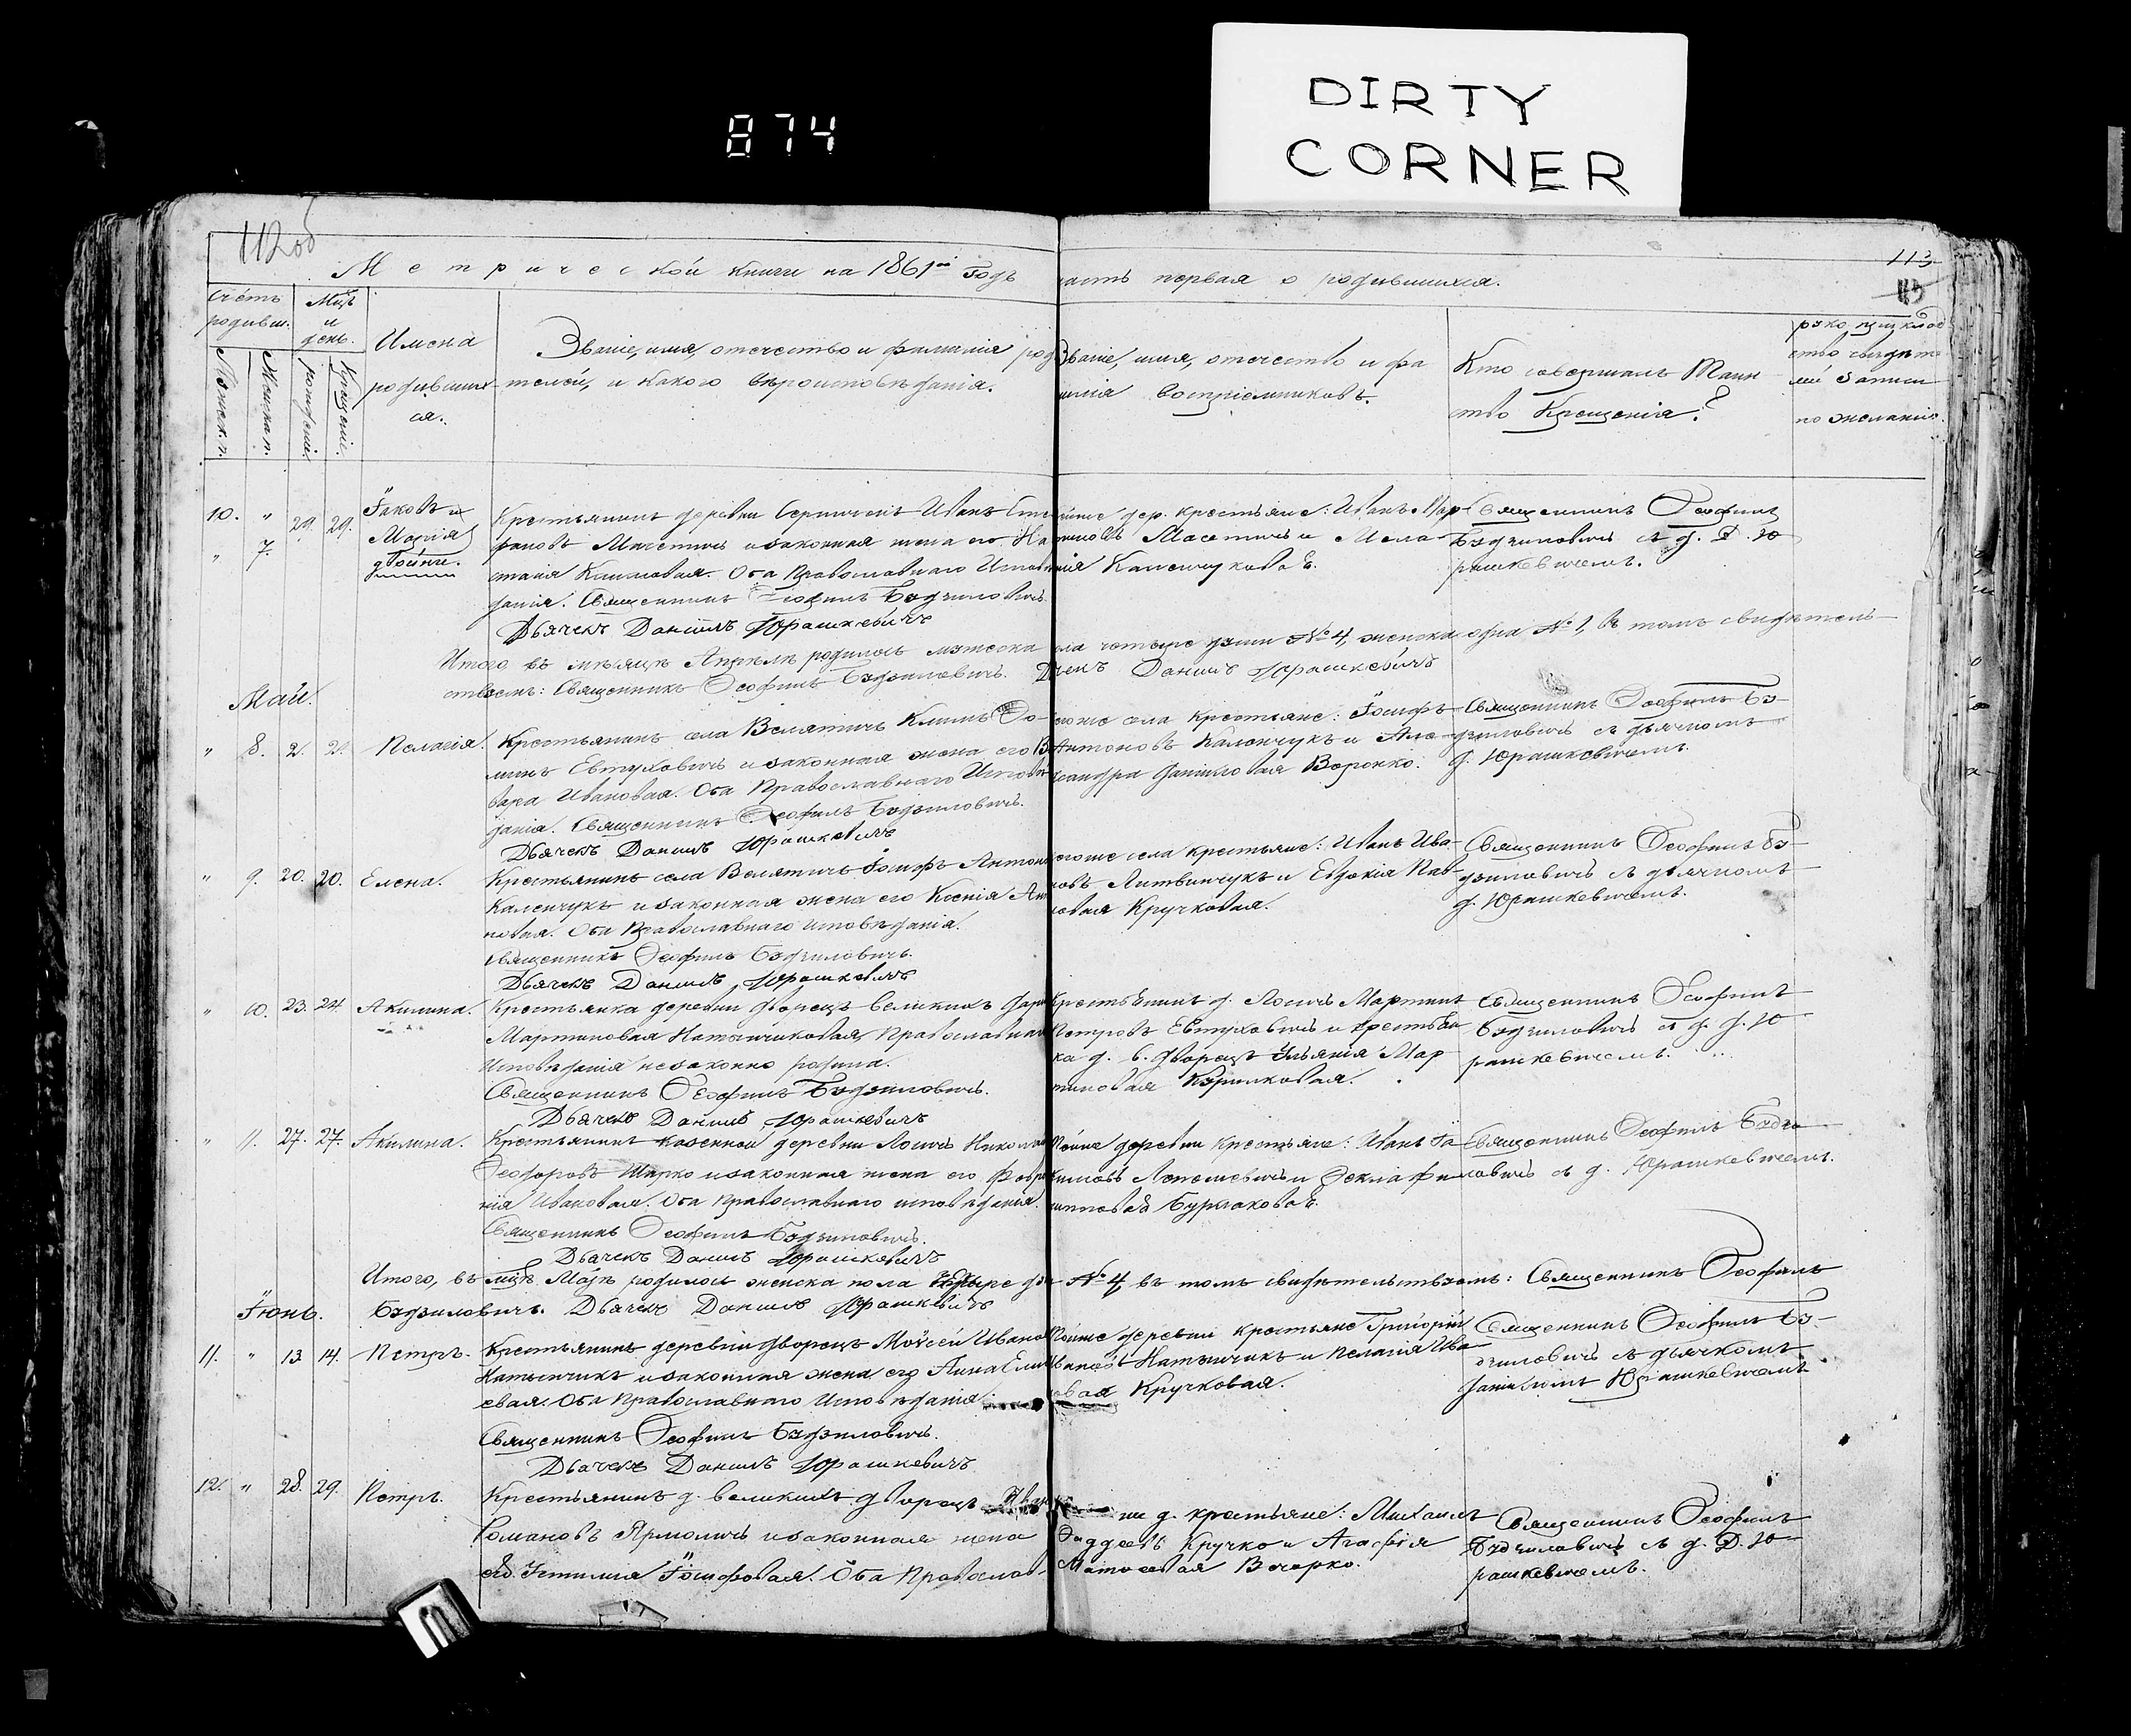 874
DIRTY
CORNER
112 об
113
Метрической книги на 1861й годъ часть первая о родившихся.
Счетъ родивш.
Мужеск. п.
Женска п.
Мцъ и день.
рожденія
Крещенія.
Имена родившихся.
Званіе, имя, отечество и фамилія роди-
телей, и какого вѣроисповѣданія.
Званіе, имя, отечество и фа-
милія воспріемниковъ.
Кто совершалъ Таин-
ство Крещенія?
по желанію.
10. " 29. 29. Іаковъ и
" 7. Марія
двойни.
Крестьянинъ деревни Иванъ Сте-
фановъ и законная жена его На-
Климовая. Оба Православнаго Исповѣ-
данія. Священникъ Ѳеофилъ Будзиловичъ.
Дьячекъ Даніилъ Юрашкевичъ
дер. крестьяне: Иванъ Мар-
тиновъ и Мела-
нія Каленчукова.
Священникъ Ѳеофилъ
Будзиловичъ съ д. Д. Ю-
рашкевичемъ.
Итого въ мѣсяцѣ Апрѣлѣ родилось мужеска пола четыре души № 4, женска одна № 1, въ томъ свидѣтель-
ствуемъ: Священникъ Ѳеофилъ Будзиловичъ. Дьячекъ Даніилъ Юрашкевичъ
Май.
" 8. 2. 2. Пелагія.
Крестьянинъ села Велятичъ Климъ Ѳо-
минъ Евтуховичъ и законная жена его Вар-
вара Ивановая. Оба Православнаго Исповѣ-
данія. Священникъ Ѳеофилъ Будзиловичъ.
Дьячекъ Даніилъ Юрашкевичъ
тогоже села крестьяне: Іосифъ
Антоновъ Каленчукъ и Але-
ксандра Даниловая Воронко.
Священникъ Ѳеофилъ Бу-
дзиловичъ съ дьячкомъ
Д. Юрашкевичемъ.
" 9. 20. 20. Елена.
Крестьянинъ села Велятичъ Іосифъ Антоновъ
Каленчукъ и законная жена его Ксенія Ан-
новая. Оба Православнаго исповѣданія.
Священникъ Ѳеофилъ Будзиловичъ.
Дьячекъ Даніилъ Юрашкевичъ
тогоже села крестьяне: Иванъ Ива-
новъ Литвинчукъ и Евдокія Пав-
ловая Кручковая.
Священникъ Ѳеофилъ Бу-
дзиловичъ съ дьячкомъ
Д. Юрашкевичемъ.
" 10. 23. 24. Акилина.
Крестьянка деревни Дворецъ великихъ Дарія
Мартиновая Натынчиковая, Православнаго
Исповѣданія незаконно родила.
Священникъ Ѳеофилъ Будзиловичъ.
Дьячекъ Даніилъ Юрашкевичъ
Крестьянинъ д. Лосичъ Мартинъ
Петровъ Евтуховичъ и крестьян-
ка д. в. Дворецъ Ульянія Мар-
тиновая Курилковая.
Священникъ Ѳеофилъ
Будзиловичъ съ д. Д. Ю-
рашкевичемъ.
" 11. 27. 27. Акилина.
Крестьянинъ казенной деревни Лосичъ Николай
Ѳеодоровъ Шарко и законная жена его Февро-
нія Ивановая. Оба Православнаго исповѣданія.
Священникъ Ѳеофилъ Будзиловичъ.
Дьячекъ Даніилъ Юрашкевичъ
Тойже деревни крестьяне: Иванъ Іа-
кимовъ и Ѳекла Фи-
липповая Бурлаковая.
Священникъ Ѳеофилъ Будзи-
ловичъ съ д. Юрашкевичемъ.
Итого, въ мцѣ Маѣ родилось женска пола четыре души № 4, въ томъ свидѣтельствуемъ: Священникъ Ѳеофилъ
Будзиловичъ. Дьячекъ Даніилъ Юрашкевичъ
Іюнь.
11. " 13 14. Петръ.
Крестьянинъ деревни Дворецъ Мойсей Ивановъ
Натынчикъ и законная жена его Анна Ели-
сеевая. Оба Православнаго Исповѣданія.
Священникъ Ѳеофилъ Будзиловичъ.
Дьячекъ Даніилъ Юрашкевичъ
Тойже деревни крестьяне Григорій
Ивановъ Натынчикъ и Пелагія Ива-
новая Кручковая.
Священникъ Ѳеофилъ Бу-
дзиловичъ съ дьячкомъ
Даніиломъ Юрашкевичемъ
12. " 28. 29. Петръ.
Крестьянинъ д. великихъ Дворецъ
Романовъ Ярмоличъ и законная жена
его Устинія Іосифовая. Оба Православ-
д. крестьяне: Михаилъ
Ѳаддеевъ Кручко и Агафія
Матѳеевая Вечорко.
Священникъ Ѳеофилъ
Будзиловичъ съ д. Д. Ю-
рашкевичемъ.